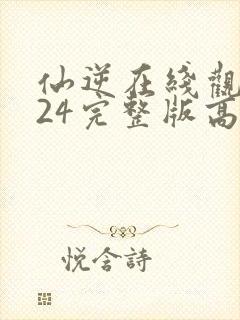 仙逆在綫觀
24完整版高
悅含詩